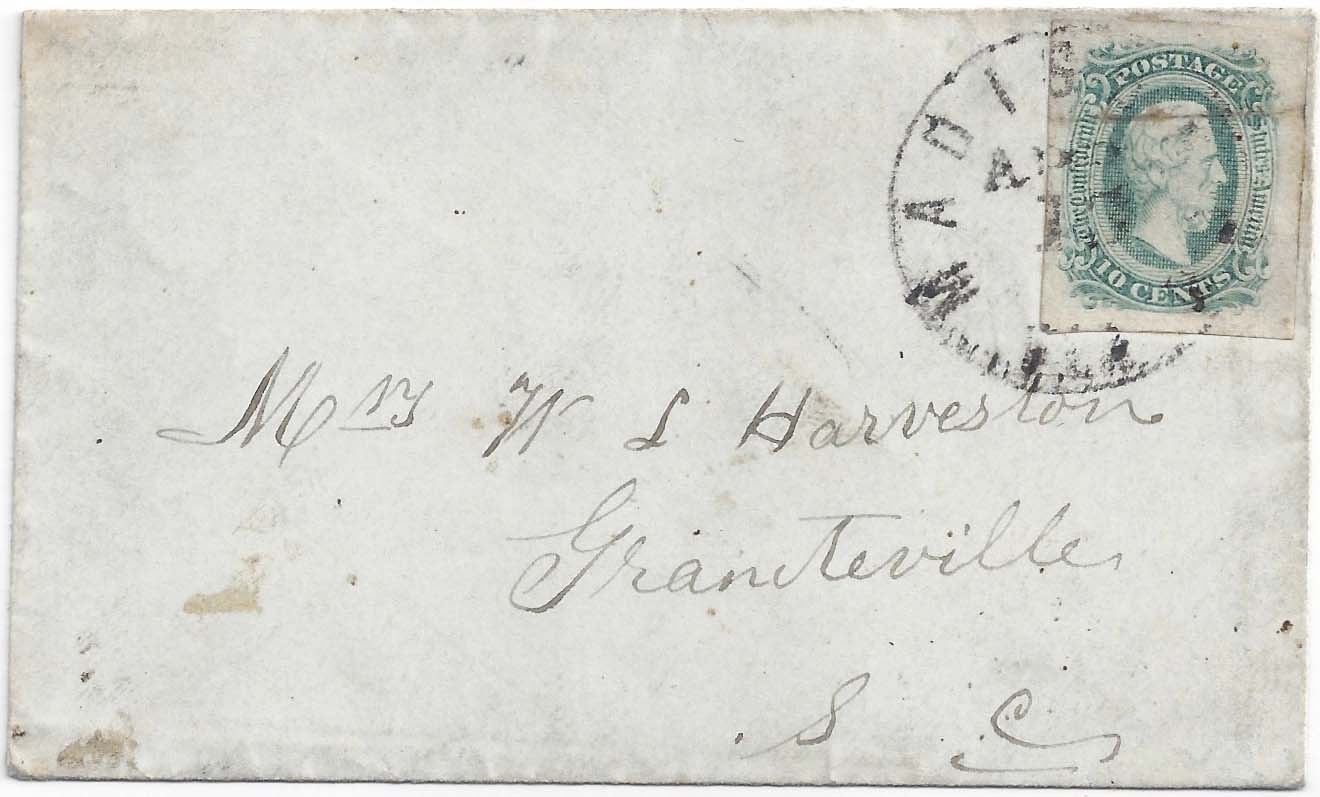 MADIS
AP
POSTAGE
The Confederate States of America
10 CENTS
Mrs W L Harveston
Graniteville
S C